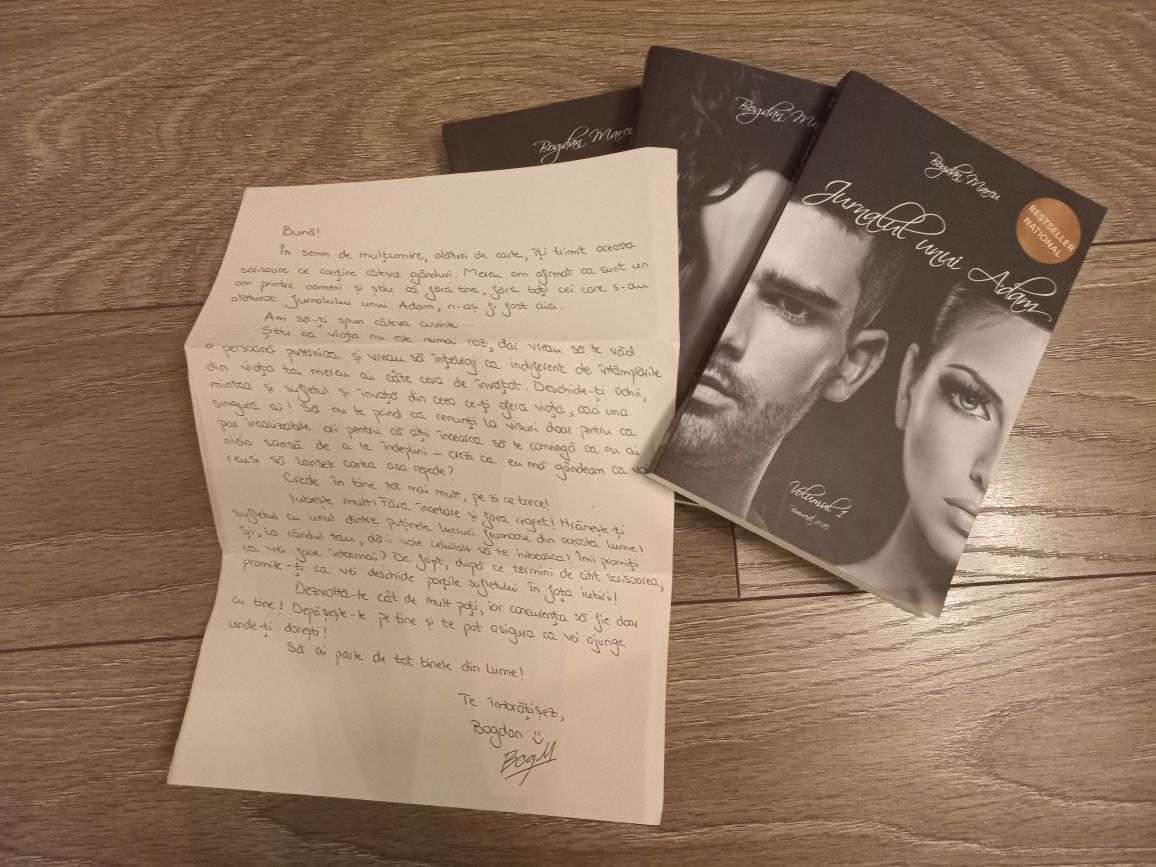 Bună!
În semn de mulțumire, alături de carte, îți trimit aceasta
scrisoare ce conține câteva gânduri. Mereu am afirmat ca sunt un
om printre oameni și știu că fara tine, fara toți cei care s-au
alăturat Jurnalului unui Adam, n-aș fi fost aici.
Am să-ți spun câteva cuvinte...
Știu ca viața nu este numai roz, dar vreau să te văd
o persoană puternica și vreau să înțelegi ca indiferent de întâmplările
din viața ta mereu ai câte ceva de învățat. Deschide-ți ochii,
mintea și sufletul și învață din ceea ce-ți ofera viața, caci una
singură ai! Să nu te prind că renunți la visuri doar pentru ca
par irealizabile ori pentru că alții încearca să te convingă ca nu ai
nicio șansă de a le îndeplini - crezi ca eu mă gândeam ca voi
reuși să lansez cartea asa repede?
Crede în tine tot mai mult, pe zi ce trece!
Iubește mult! Fără încetare și fara regret! Hrănește-ți
sufletul cu unul dintre puținele lucruri frumoase din aceasta lume!
Și, la rândul tau, dă-i voie celuilalt să te iubeasca! Îmi promiți
ca vei face întocmai? De fapt, după ce termini de citit scrisoarea,
promite-ți ca vei deschide porțile sufletului în fața iubirii!
Dezvoltă-te cât de mult poți, iar concurența să fie doar
cu tine! Depășește-te pe tine și te pot asigura ca vei ajunge
unde-ți dorești!
Să ai parte de tot binele din lume!
Te îmbrățișez,
Bogdan
BogM
Bogdan Marcu
Bogdan Ma
Bogdan Marcu
Jurnalul unui Adam
BESTSELLER
NATIONAL
Volumul 1